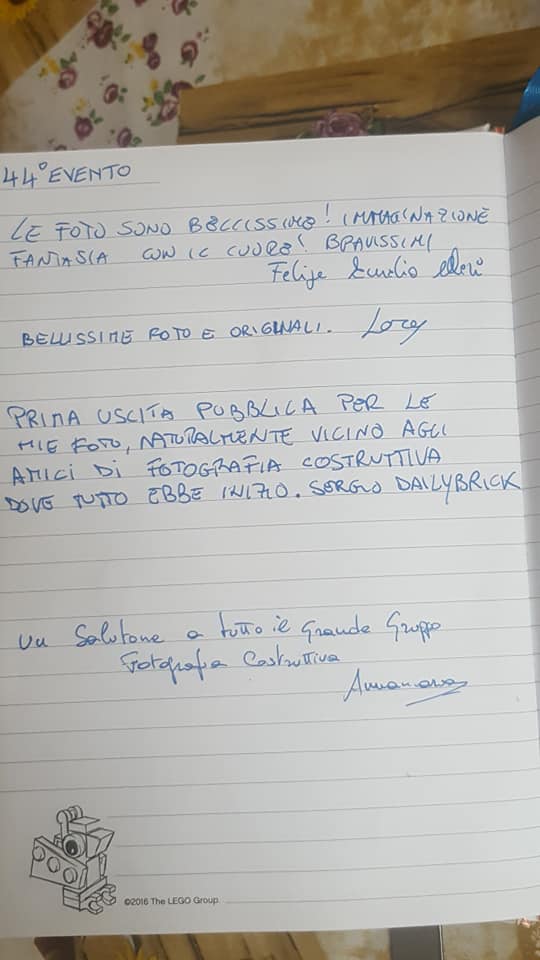 44° EVENTO
LE FOTO SONO BELLISSIME! IMMAGINAZIONE
FANTASIA CON IL CUORE! BRAVISSIMI
Felije
BELLISSIME FOTO E ORIGINALI. Lory
PRIMA USCITA PUBBLICA PER LE
MIE FOTO, NATURALMENTE VICINO AGLI
AMICI DI FOTOGRAFIA COSTRUTTIVA
DOVE TUTTO EBBE INIZIO. SERGIO DAILYBRICK
Un Salutone a tutto il Grande Gruppo
Fotografia Costruttiva
©2016 The LEGO Group